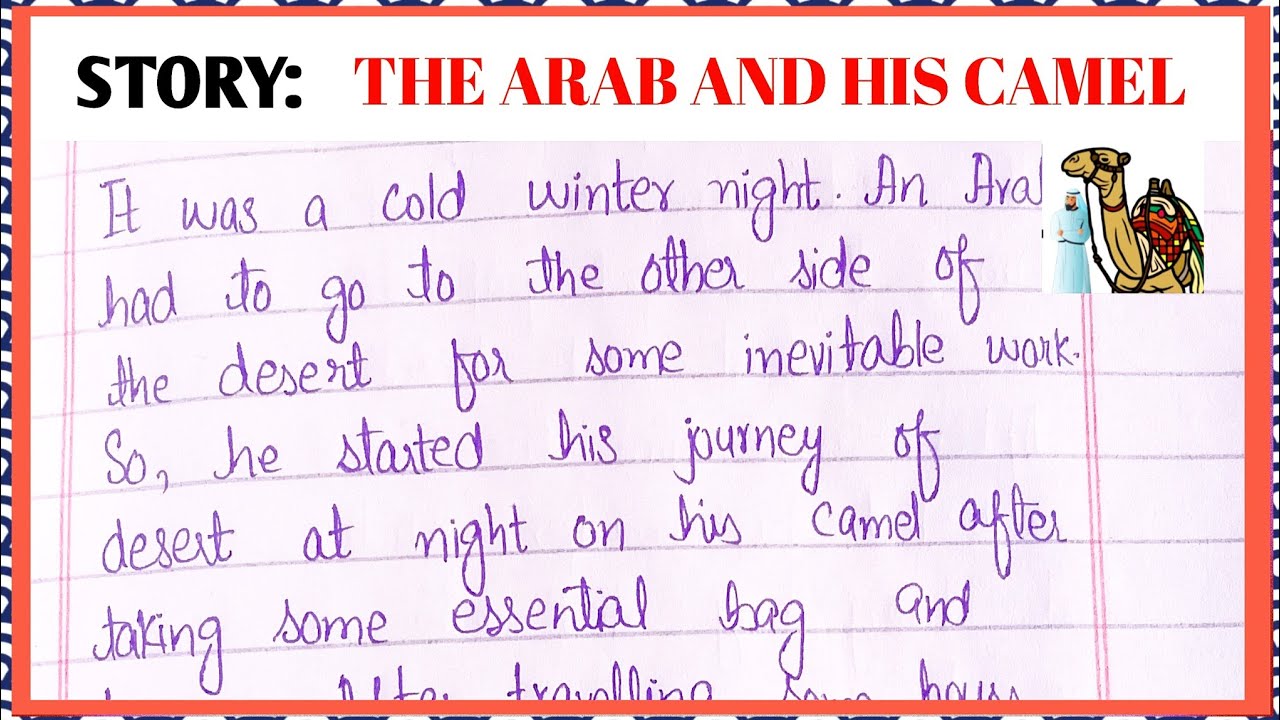 STORY: THE ARAB AND HIS CAMEL
It was a cold winter night. An Ara
had to go to the other side of
the desert for some inevitable work.
So, he started his journey of
desert at night on his camel after
taking some essential bag and
travelling some hours